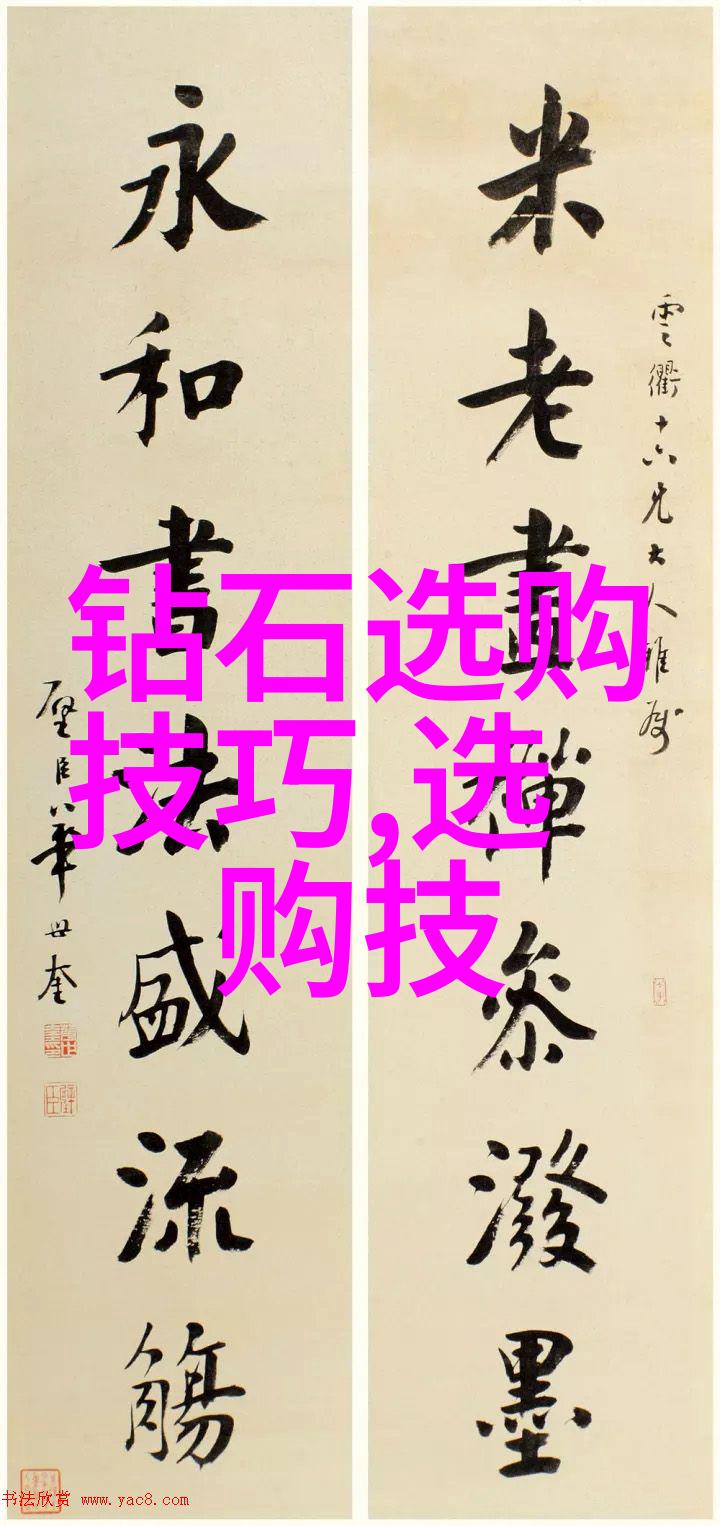 雲衢十六兄大人雅屬
米老畫禪參潑墨
永和書法盛流觴
璧臣華世奎
钻石选购
技巧,选
购技
书法欣赏 www.yac8.com